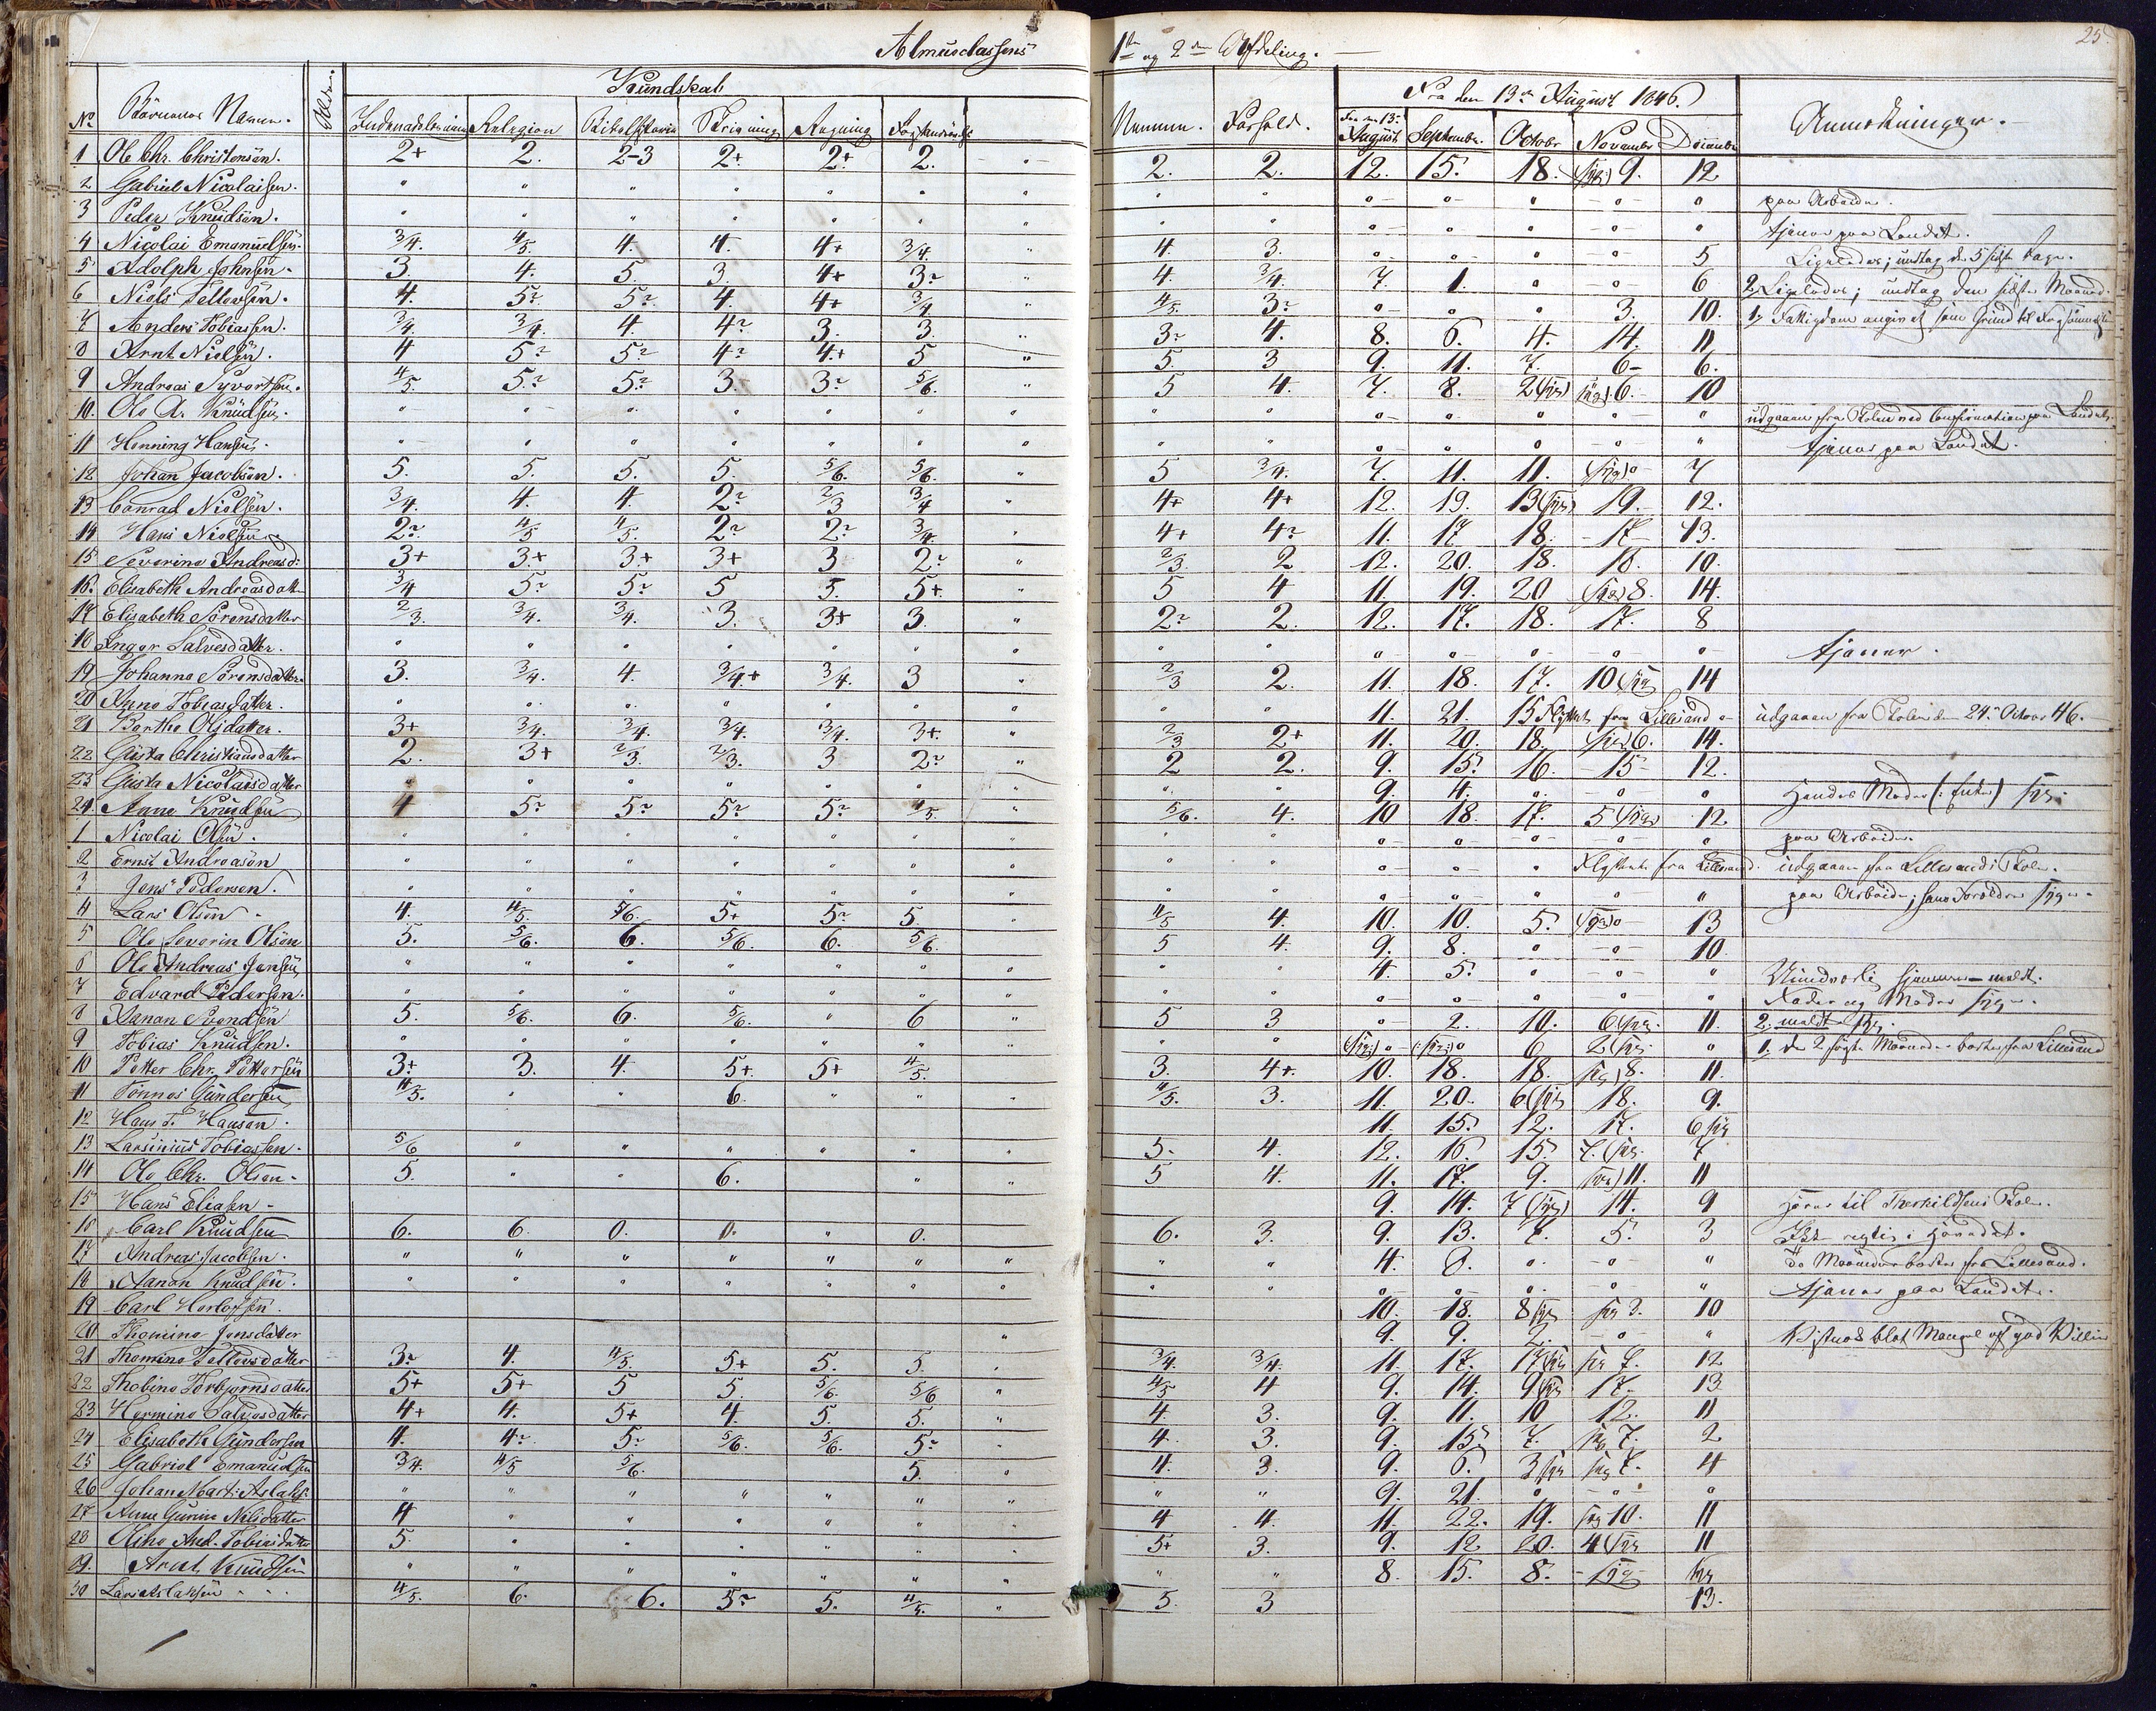 25.
Almueclassens 1ste og 2den Afdeling.
No Børnenes Navne. Alder. Kundskab Nemme. Forhold. Fra den 13de August 1846. Anmærkninger.
Indenadslæsning Religion Bibelhistorie Skrivning Regning
Fra den 13de August September. October November December
1 Ole Chr. Christensen. 2+ 2. 2-3 2+ 2+ 2. 2. 2. 12. 15. 18. (syg) 9. 12
2 Gabriel Nicolaisen. " " " " " " " " " " " " " paa Arbeide.
3 Peder Knudsen. " " " " " " " " " " " " " tjener paa Landet.
4 Nicolai Emanuelsen. 3/4. 4/5. 4. 4. 4+ 3/4. 4. 3. " " " " 5 Ligeledes; undtag de 5 sidste Dage.
5 Adolph Johnsen. 3. 4. 5. 3. 4+ 3? 4. 3/4. 7. 1. " " 6 2, Ligeledes; undtag den sidste Maaned.
6 Niels Tellevsen. 4. 5? 5? 4. 4+ 3/4 4/5. 3? " " " 3. 10. 1, Fattigdom angivet som Grund til
7 Anders Tobiassen. 3/4. 3/4. 4. 4? 3. 3. 3? 4. 8. 6. 4. 14. 11
8 Arnt Nielsen. 4 5? 5? 4? 4+ 5 5. 3 9. 11. 7. 6- 6.
9 Andreas Syvertsen. 4/5. 5? 5? 3. 3? 5/6. 5 4. 7. 8. 2 (syg) (syg) 6. 10
10. Ole A. Knudsen. " " " " " " " " " " " " " udgaaen fra Skolen ved Confirmation paa Landet.
11 Henning Hansen. " " " " " " " " " " " " " tjener paa Landet.
12 Johan Jacobsen. 5. 5. 5. 5. 5/6. 5/6. 5 3/4. 7. 11. 11. (syg) " 7
13 Conrad Nielsen. 3/4. 4. 4. 2? 2/3 3/4 4+ 4+ 12. 19. 13 (syg) 19. 12.
14 Hans Nielsen 2? 4/5 4/5. 2? 2? 3/4. 4+ 4? 11. 17 18. 17- 13.
15 Severine Andreasd: 3+ 3+ 3+ 3+ 3 2? 2/3. 2 12. 20. 18. 18. 10.
16. Elisabeth Andreasdatt 3/4 5? 5? 5 5. 5+ 5 4 11. 19. 20 (syg) 8. 14.
17 Elisabeth Sørensdatter 2/3. 3/4. 3/4. 3. 3+ 3. 2? 2. 12. 17. 18. 17. 8
18 Inger Salvesdatter. " " " " " " " " " " " " " tjener.
19 Johanne Sørensdatter. 3. 3/4. 4. 3/4+ 3/4. 3 2/3 2. 11. 18. 17. 10 (syg 14
20 Anne Tobiasdatter. " " " " " " " " 11. 21. 15 Flyttet fra Lillesand " udgaaen fra Skolen den 24de October 46.
21 Berthe Olsdatter. 3+ 3/4. 3/4. 3/4. 3/4. 3+ 2/3 2+ 11. 20. 18. (syg) 6. 14.
22 Gusta Christiansdatter 2. 3+ 2/3. 2/3. 3 2? 2 2. 9. 15. 16. 15- 12.
23 Gusta Nicolaisdatter " " " " " " " " 9. 4. " " " Hendes Moder (: Enke) syg.
24. Anne Knudsen 4 5? 5? 5? 5? 4/5. 5/6. 4. 10 18. 17. 5 (syg) 12
1 Nicolai Olsen. " " " " " " " " " " " " " paa Arbeide.
2 Ernst Andreasen " " " " " " " " " " " Flyttet fra Lillesand. udgaaen fra Lillesands Skole.
3 Jens Pedersen. " " " " " " " " " " " " " paa Arbeide; hans Forældre syge.
4 Lars Olsen 4. 4/5. 5/6. 5+ 5? 5 4/5 4. 10. 10. 5. (syg) " 13
5 Ole Severin Olsen 5. 5/6. 6. 5/6. 6. 5/6. 5 4. 9. 8. " " 10.
6 Ole Andreas Jensen " " " " " " " " 4. 5. " " "
7 Edvard Pedersen. " " " " " " " " " " " " " Fader og Moder syge.
8 Aanon Svendsen 5. 5/6. 6. 5/6. " 6 5 3 " 2. 10. 6 (syg. 11. 2, meldt syg.
9 Tobias Knudsen. " " " " " " " " (syg) " (syg) " 6 2 (syg " 1, de 2 sidste Maaneder borte fra Lillesand
10 Petter Chr. Pettersen 3+ 3. 4. 5+ 5+ 4/5. 3. 4+ 10. 18. 18. syg) 8. 11.
11 Tønnes Gundersen 4/5. " " 6. " " 4/5. 3. 11. 20. 6 (syg 18. 9.
12 Hans T. Hansen. 11. 15. 12. 17. 6 syg
13 Larsinius Tobiassen. 5/6 " " " " " 5. 4. 12. 16. 15. 7. (syg. 7
14 Ole Chr. Olsen. 5. " " 6. " " 5 4. 11. 17. 9. syg) 11. 11
15 Hans Eliasen 9. 14. 7 (syg) 14. 9 hører til Therkildsens Skole.
16 Carl Knudsen 6. 6. 0. 0. " 0. 6. 3. 9. 13. 7. 5. 3
17 Andreas Jacobsen. " " " " " " " " 4. 8. " " " Maaneder borte fra Lillesand.
18 Aanon Knudsen. " " " " " " " " " " " " " tjener paa Landet.
19 Carl Herlofsen. 10. 18. 8 syg syg 3. 10
20 Thomine Jensdatter 9. 9. 2. " " blot Mangel af god Villie
21 Thomine Tellevsdatter 3? 4. 4/5. 5+ 5. 5. 3/4. 3/4. 11. 17. 17 (syg syg 7. 12
22 Thobine Torbjørnsdatter 5+ 5+ 5 5. 5/6. 5/6 4/5 4 9. 14. 9 (syg 17. 13
23 Hermine Salvesdatter 4+ 4. 5+ 4. 5. 5. 4. 3. 9. 11. 10 12. 11
24 Elisabeth Gundersen 4. 4? 5? 5/6. 5/6. 5? 4. 3. 9. 15. 7. syg 7. 2
25 Gabriel Emanuelsen 3/4. 4/5 5/6. 5. 4. 3. 9. 6. 3 syg syg 7. 4
26 Johan Mart: Aslaks. " " " " " " " " 9. 21. " " "
27 Anne Gurine Nilsdatter 4 " " " " " 4 4. 11. 22. 19. syg 10. 11
28 Oline And. Tobiasdatter 5. " " " " " 5+ 3. 9. 12 20. 4 (syg 11
29. Arent Knudsen " " " " " " " " 8. 15. 8. syg syg
30 Lars Aslaksen 4/5. 6. 6. 5? 5. 4/5. 5. 3 13.